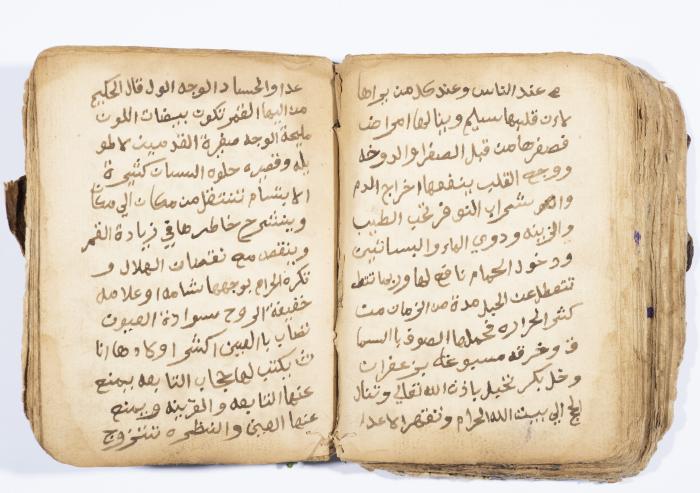 عند الناس وعند كل من يراها
لان قلبها سليم وينالها امراض
في صغرها من قبل الصفرا والدوخه
ووجع القلب ينفعها اخراج الدم
شراب النوفر تحب الطيب
والزينه ودوي الماء والبساتين
ودخول الحمام نافع لها وربما تتط
تتعطل عن الحبل مدة من الزمان من
كثر الحراره تحملها الصوف با السما
ق وخرقه مسبوغه بزعفران
وخل بكر تحبل باذن الله تعالي وتنال
الحج الي بيت الله الحرام وتقهر الاعدا
عدا والحساد الوجه الول قال الحكيم
من اليها القمر تكون بيضات اللون
مليحة الوجه صغيرة القدمين لا طو
يله وقصيره حلوه اللسان كثيرة
الابتسام تنتقل من مكان الي مكان
وينشرح خاطرها في زيادة القمر
وينقص مع نقصان الهلال و
تكره الحرام بوجهها شامه او علامه
خفيفة الروح سوادة العيون
تصاب بالعين اكثر اولادها انا
ث يكتب لها حجاب التابعه يمنع
عنها التابعه والقرينه ويمنع
عنها العين والنظره تتزوج